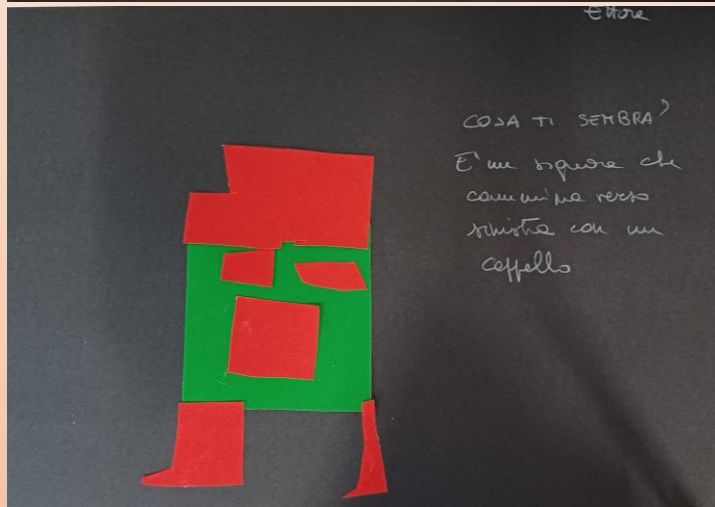 Ettore
COSA TI SEMBRA?
E' un signore che
cammina verso
sinistra con un
cappello